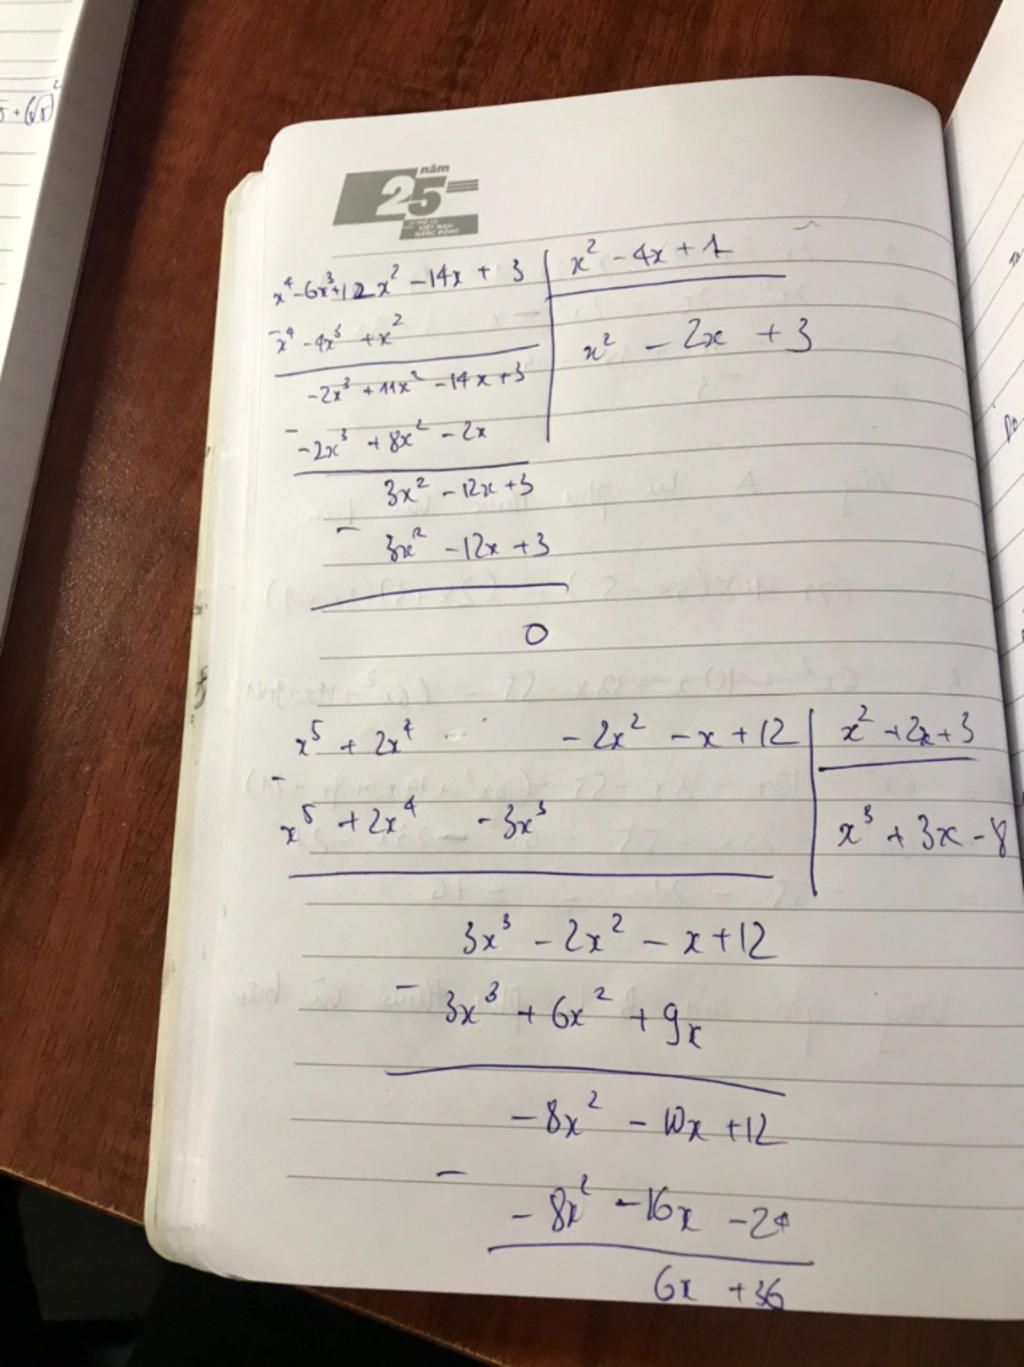 5 + (√5)²
năm
25
VIỆT NAM
NĂNG ĐỘNG
x⁴ - 6x³ + 12x² - 14x + 3 | x² - 4x + 1
- x⁴ - 4x³ + x²
x² - 2x + 3
-2x³ + 11x² - 14x + 3
- -2x³ + 8x² - 2x
3x² - 12x + 3
- 3x² - 12x + 3
0
x⁵ + 2x⁴ - 2x² - x + 12 | x² + 2x + 3
- x⁵ + 2x⁴ - 3x³
x³ + 3x - 8
3x³ - 2x² - x + 12
- 3x³ + 6x² + 9x
-8x² - 10x + 12
- -8x² - 16x - 24
6x + 36